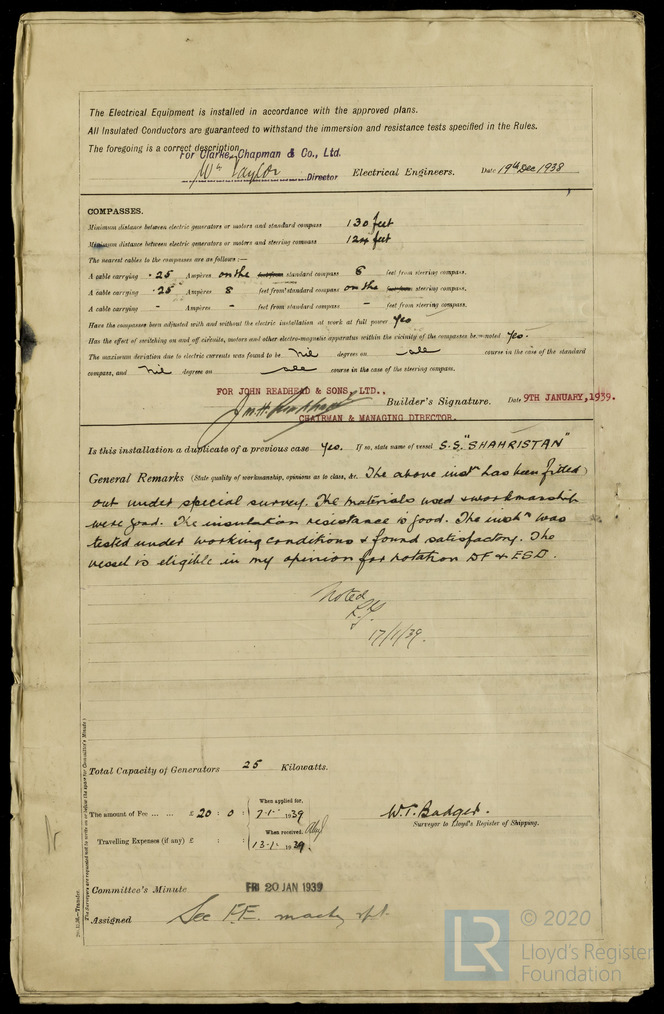 The Electrical Equipment is installed in accordance with the approved plans.
All Insulated Conductors are guaranteed to withstand the immersion and resistance tests specified in the Rules.
The foregoing is a correct description.
For Clarke, Chapman & Co., Ltd.
Wm Taylor Director Electrical Engineers. Date 19th Dec 1938
COMPASSES.
Minimum distance between electric generators or motors and standard compass 130 feet
Minimum distance between electric generators or motors and steering compass 124 feet
The nearest cables to the compasses are as follows:—
A cable carrying .25 Ampères on the feet from standard compass 8 feet from steering compass.
A cable carrying .25 Ampères 8 feet from standard compass on the feet from steering compass.
A cable carrying - Ampères - feet from standard compass - feet from steering compass.
Have the compasses been adjusted with and without the electric installation at work at full power Yes
Has the effect of switching on and off circuits, motors and other electro-magnetic apparatus within the vicinity of the compasses been noted Yes.
The maximum deviation due to electric currents was found to be Nil degrees on all course in the case of the standard
compass, and Nil degrees on all course in the case of the steering compass.
FOR JOHN READHEAD & SONS, LTD.,
Builder's Signature. Date 9TH JANUARY, 1939.
CHAIRMAN & MANAGING DIRECTOR.
Is this installation a duplicate of a previous case Yes. If so, state name of vessel S.S. "SHAHRISTAN"
General Remarks (State quality of workmanship, opinions as to class, &c. The above instn has been fitted
out under special survey. The materials used & workmanship
were good. The insulation resistance is good. The instn was
tested under working conditions & found satisfactory. The
vessel is eligible in my opinion for notation DF & ESD.
Noted
17/1/39.
Total Capacity of Generators 25 Kilowatts.
The amount of Fee ... ... £ 20 : 0 : When applied for, 7.1. 1939
W.T. Badger.
Surveyor to Lloyd's Register of Shipping.
Travelling Expenses (if any) £ : : When received, 13.1. 1939.
Committee's Minute FRI 20 JAN 1939
Assigned See F.E. machy rpt.
The Surveyors are requested not to write on or below the space for Committee's Minute.
© 2020
LR
Lloyd's Register
Foundation